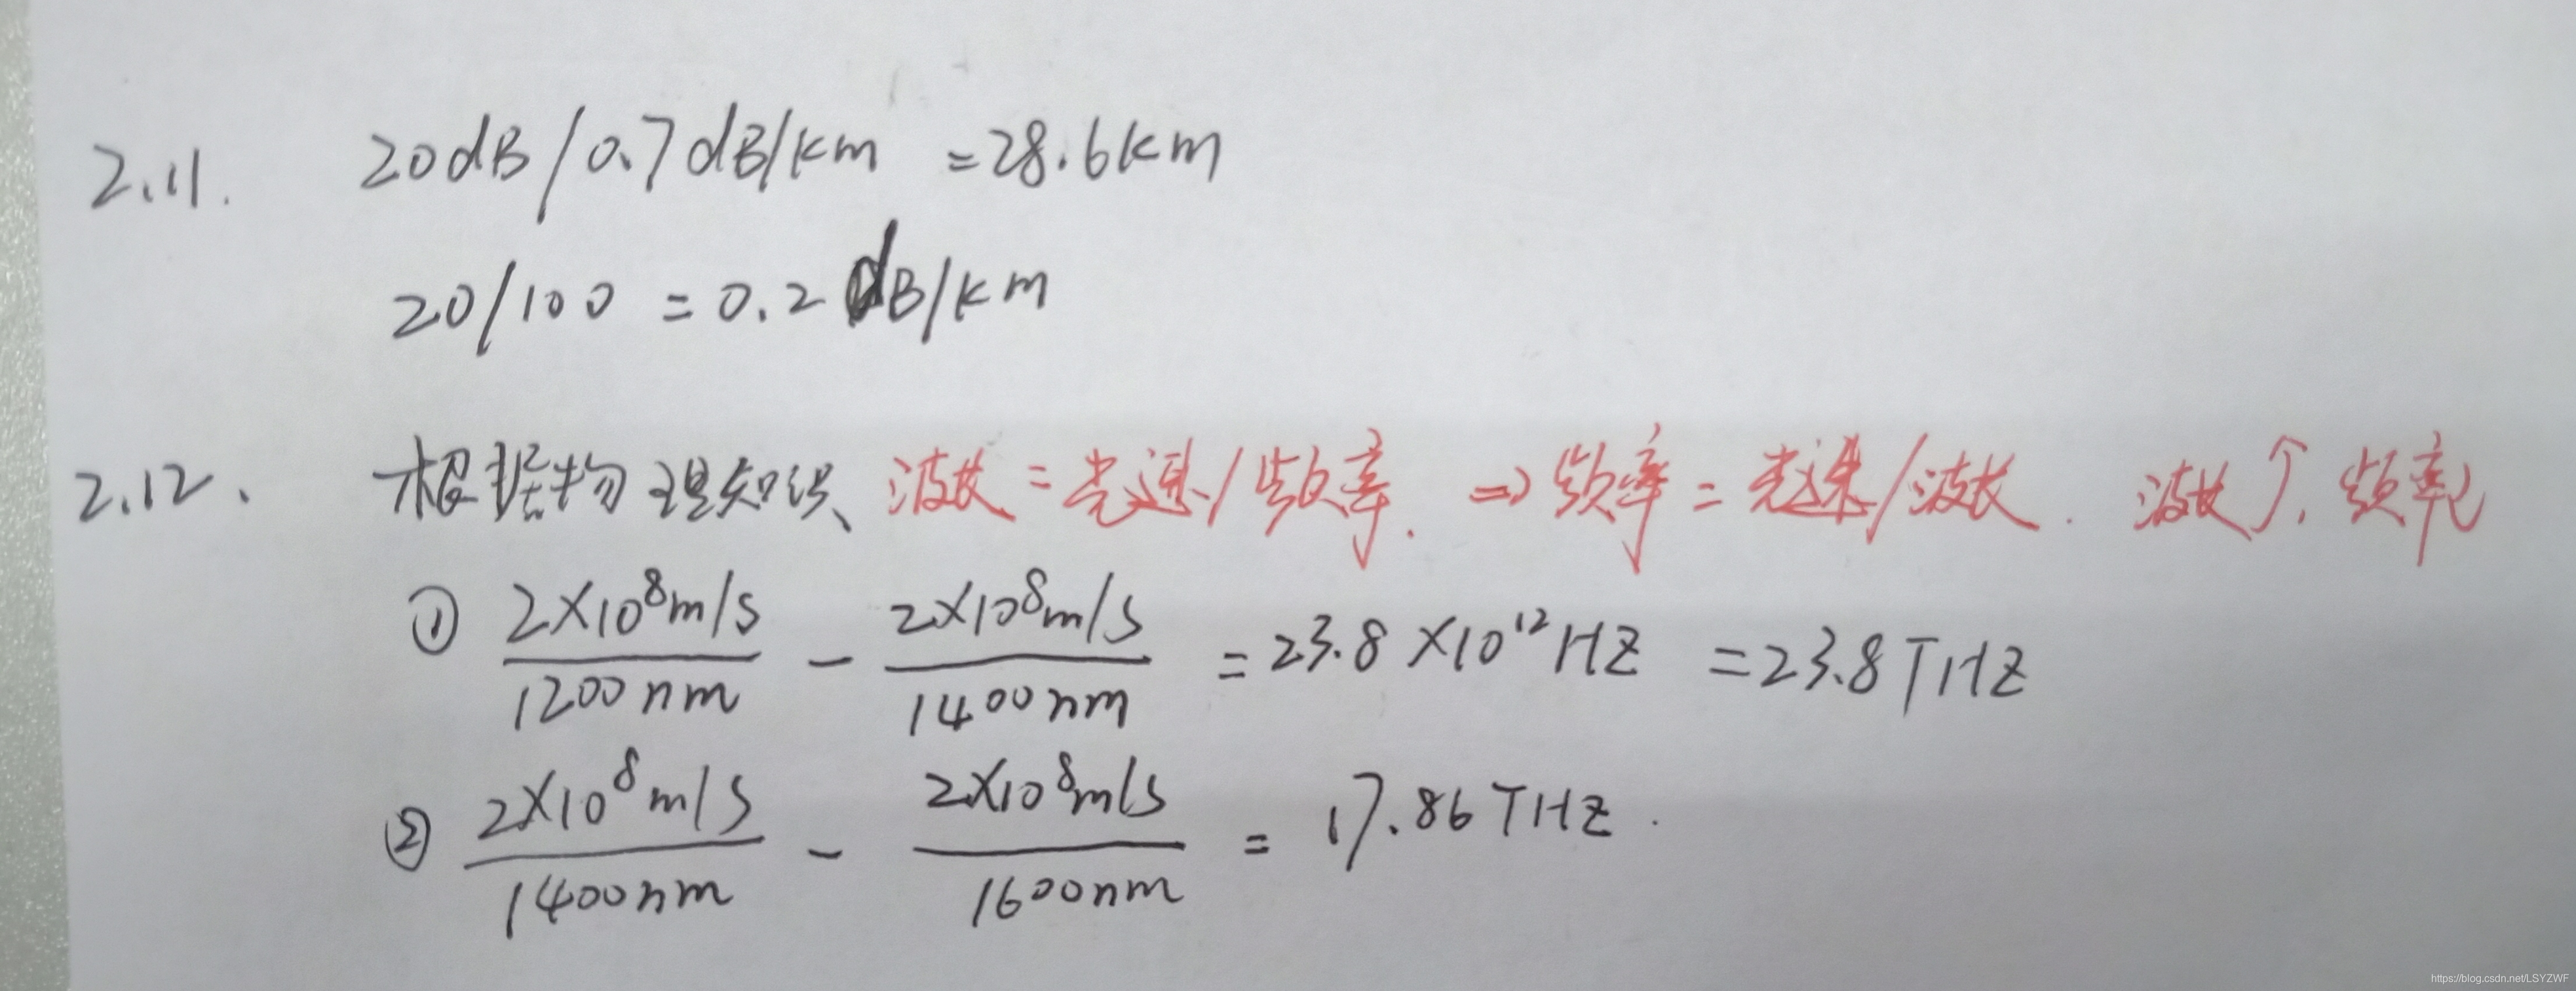 2.11. 20dB/0.7dB/km =28.6km
20/100 = 0.2 dB/km
2.12. 根据物理知识、波长=光速/频率. => 频率=光速/波长. 波长↑, 频率↓
① 2×10⁸m/s/1200nm - 2×10⁸m/s/1400nm = 23.8×10¹²HZ = 23.8THZ
② 2×10⁸m/s/1400nm - 2×10⁸m/s/1600nm = 17.86THZ.
https://blog.csdn.net/LSYZWF